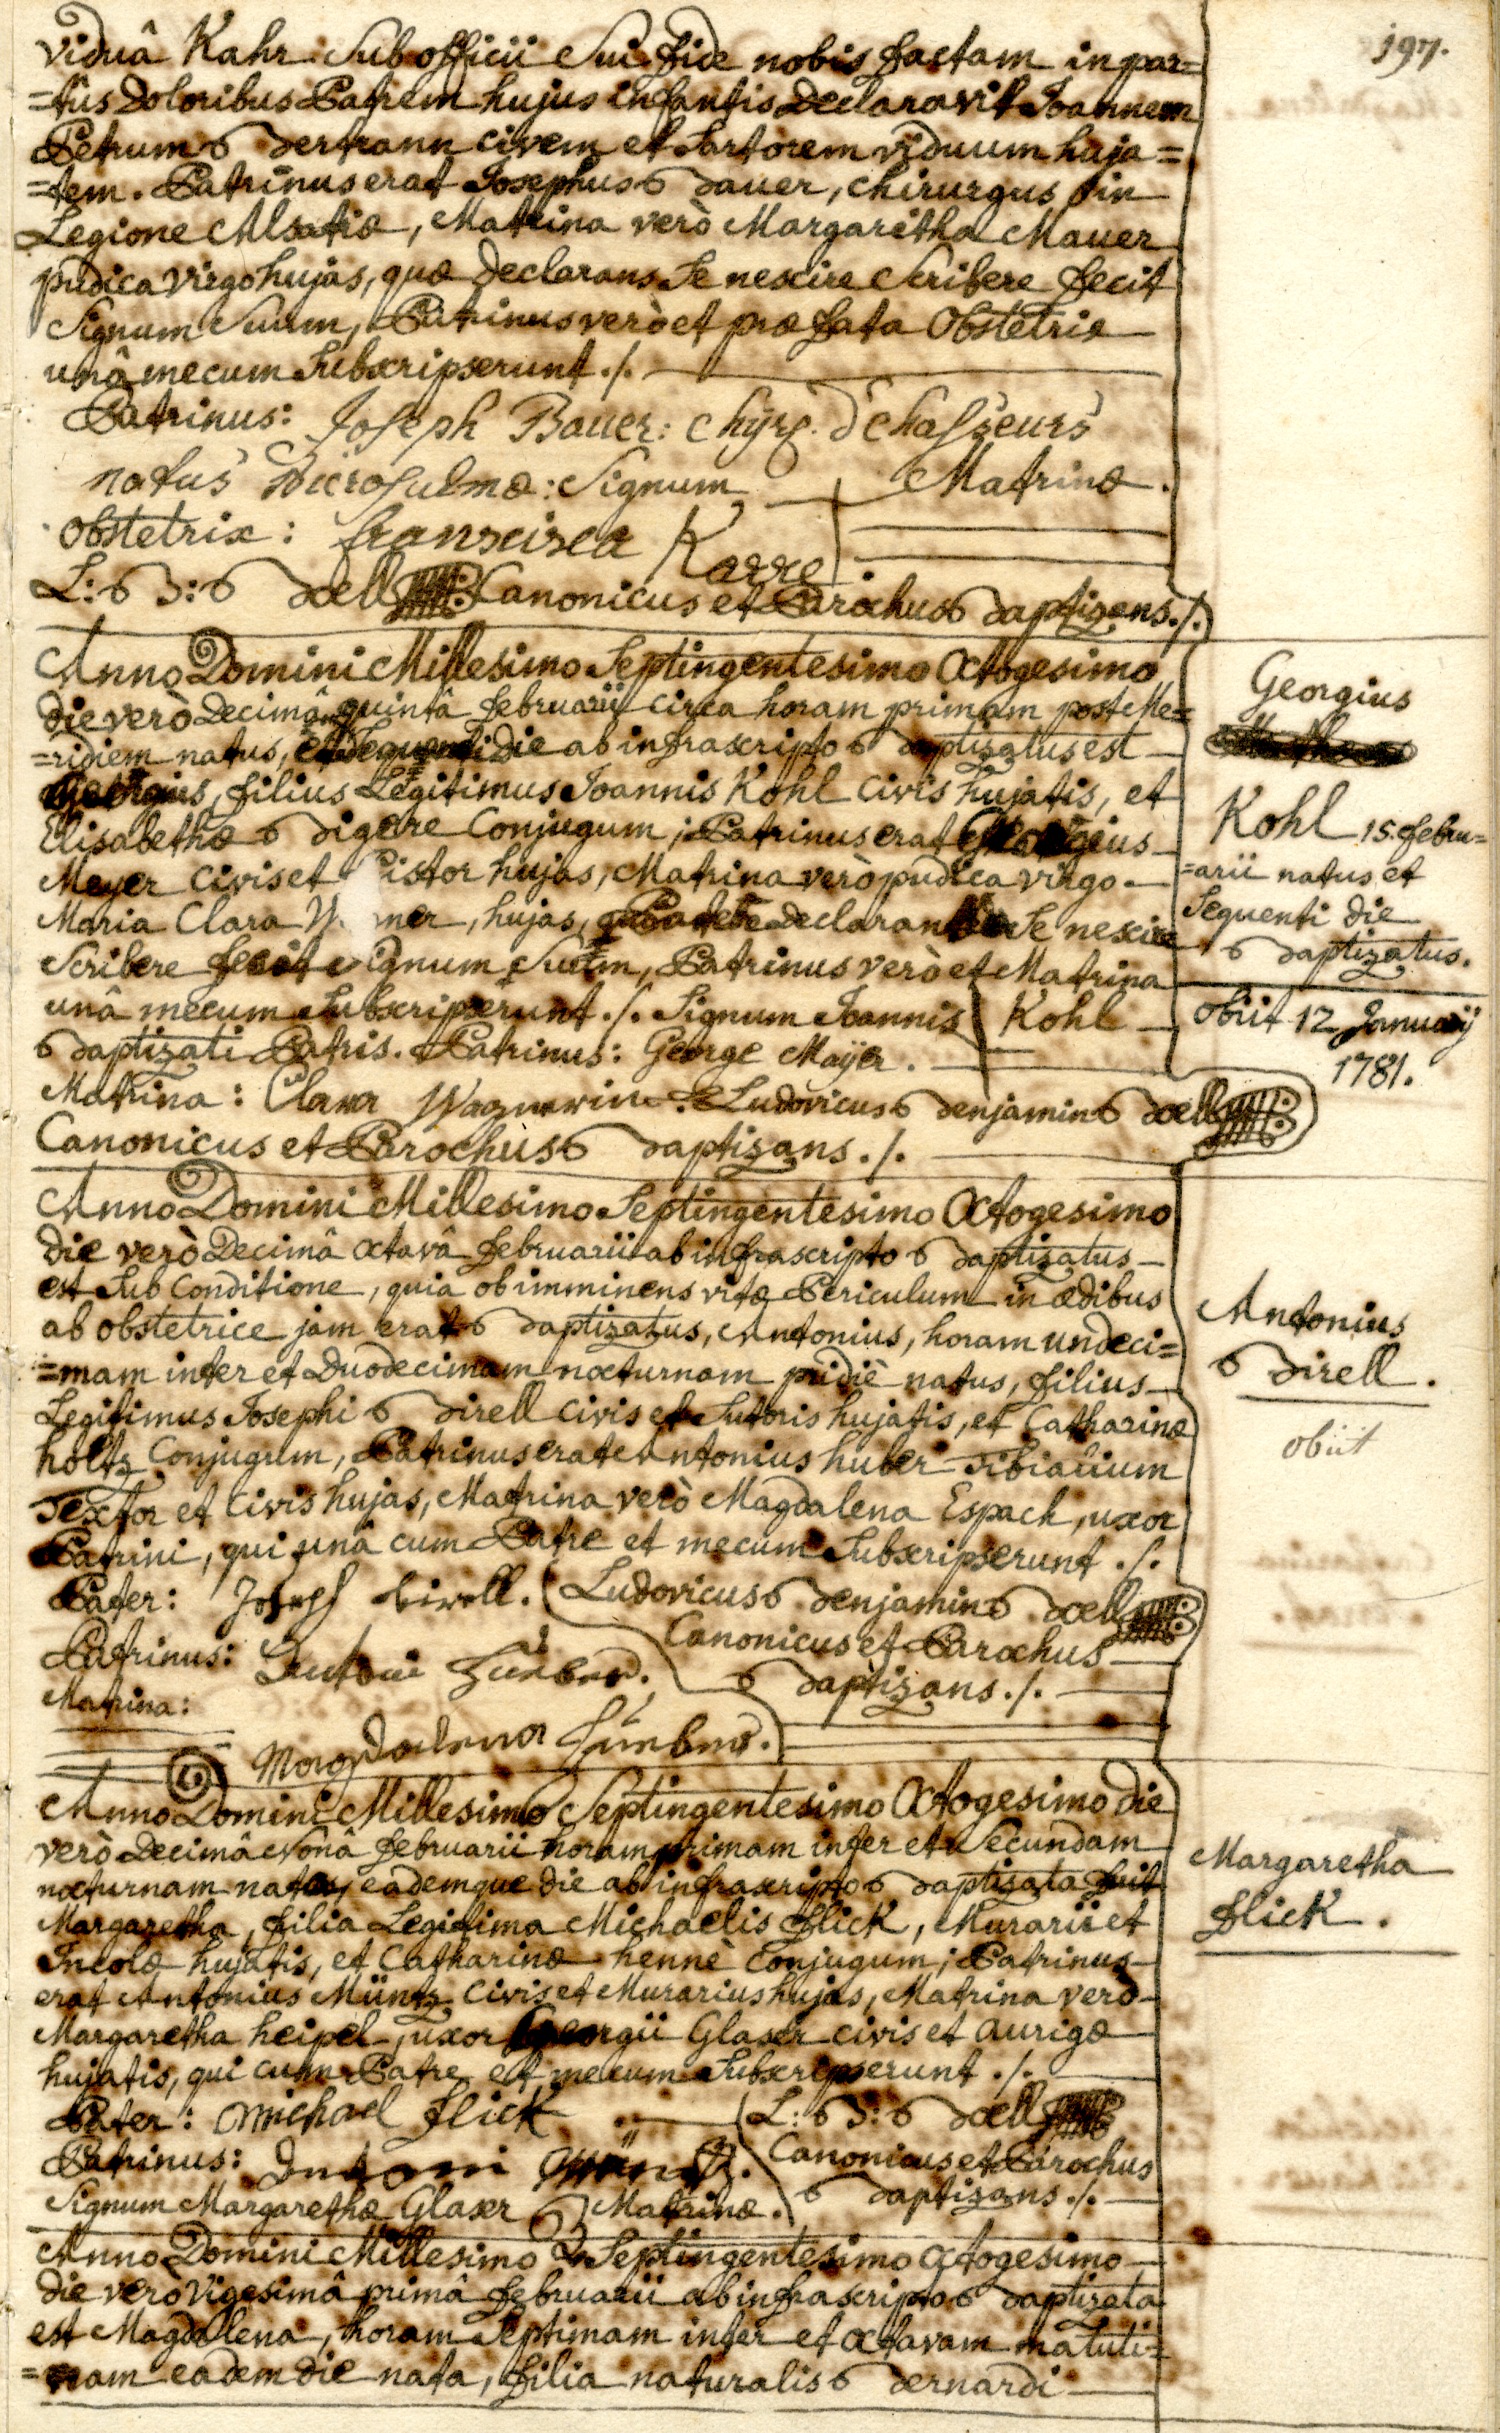 197.
viduâ Kahr Sub officii Sui fide nobis factam in par=
=tûs Doloribus Patrem hujus infantis Declaravit Joannem
Petrum Bertrann civem et Sartorem viduum huja=
=tem. Patrinus erat Josephus Bauer, chirurgus in
Legione Alsatiæ, Matrina verò Margaretha Mauer
pudica virgo hujas, quæ Declarans Se nescire Scribere fecit
Signum Suum, Patrinus verò et præfata Obstetrix
unâ mecum Subscripserunt ./.
Patrinus: Joseph Bauer: Chyrg. d'Chasseurs
natus : Signum Matrinæ.
Obstetrix: franscisca Karre
L: B: Bœll Canonicus et Parochus Baptizans ./.
Anno Domini Millesimo Septingentesimo Octogesimo
Die verò Decimâ quintâ februarii circa horam primam post Me=
=ridiem natus, et Sequenti Die ab infrascripto Baptizatus est
Georgius, filius Legitimus Joannis Kohl civis hujatis, et
Elisabethæ Bigarre Conjugum; Patrinus erat Georgius
Meyer civis et Pistor hujas, Matrina verò pudica virgo
Maria Clara hujas, Se nescire
Scribere fecit Signum Suum, Patrinus verò et Matrina
unâ mecum Subscripserunt ./. Signum Joannis Kohl
Baptizati Patris. Patrinus: George Mayer.
Matrina: Clara Wagnerin. Ludovicus Benjamin Bœll
Canonicus et Parochus Baptizans ./.
Georgius
Kohl 15. febru=
=arii natus et
Sequenti die
Baptizatus.
obiit 12 Januarij
1781.
Anno Domini Millesimo Septingentesimo Octogesimo
Die verò Decimâ octavâ februarii ab infrascripto Baptizatus
est Sub Conditione, quia ob imminens vitæ Periculum in ædibus
ab obstetrice jam erat Baptizatus, Antonius, horam undeci=
=mam inter et Duodecimam nocturnam pridiè natus, filius
Legitimus Josephi Birell civis et Sutoris hujatis, et Catharinæ
holtz Conjugum, Patrinus erat Antonius huber Tibialium
Textor et civis hujas, Matrina verò Magdalena Espach, uxor
Patrini, qui unâ cum Patre et mecum Subscripserunt ./.
Pater: Joseph birell. Ludovicus Benjamin Bœll
Canonicus et Parochus
Patrinus: Antoni Huber. Baptizans ./.
Matrina:
Magdalena Huberin.
Antonius
Birell.
obiit
Anno Domini Millesimo Septingentesimo Octogesimo Die
verò Decimâ Nonâ februarii horam primam inter et Secundam
nocturnam nata, eademque die ab infrascripto Baptizata fuit
Margaretha, filia Legitima Michaelis flick, Murarii et
Incolæ hujatis, et Catharinæ hennè Conjugum; Patrinus
erat Antonius Müntz civis et Murarius hujas, Matrina verò
Margaretha heipel, uxor Georgii Glaser civis et aurigæ
hujatis, qui cum Patre et mecum Subscripserunt ./.
Pater: Michael flick L: B: Bœll
Patrinus: Antoni Müntz. Canonicus et Parochus
Signum Margarethæ Glaser Matrinæ. Baptizans ./.
Margaretha
flick.
Anno Domini Millesimo Septingentesimo Octogesimo
Die vero Vigesimâ primâ februarii ab infrascripto Baptizata
est Magdalena, horam Septimam inter et octavam matuti=
=nam eadem die nata, filia naturalis Bernardi